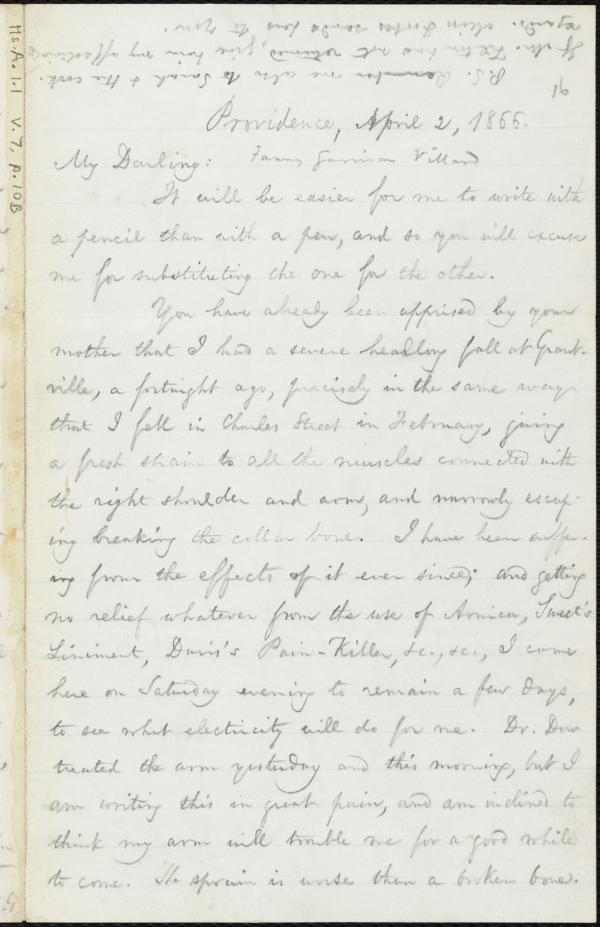 P.S. Remember me also to Sarah & the cook.
If Mr. has not returned, give him my affectionate
regards. Miss Forbes sends love to you.
91
Ms.A.1.1 V.7, p.10B
Providence, April 2, 1866.
My Darling: Fanny Garrison Villard
It will be easier for me to write with
a pencil than with a pen, and so you will excuse
me for substituting the one for the other.
You have already been apprised by your
mother that I had a severe headlong fall at Grant-
ville, a fortnight ago, precisely in the same way
that I fell in Charles Street in February, giving
a fresh strain to all the muscles connected with
the right shoulder and arm, and narrowly escap-
ing breaking the collar bone. I have been suffer-
ing from the effects of it ever since; and getting
no relief whatever from the use of Arnica, Sweet's
Liniment, Davis's Pain-Killer, &c., &c., I came
here on Saturday evening to remain a few days,
to see what electricity will do for me. Dr. Dow
treated the arm yesterday and this morning, but I
am writing this in great pain, and am inclined to
think my arm will trouble me for a good while
to come. The sprain is worse than a broken bone.